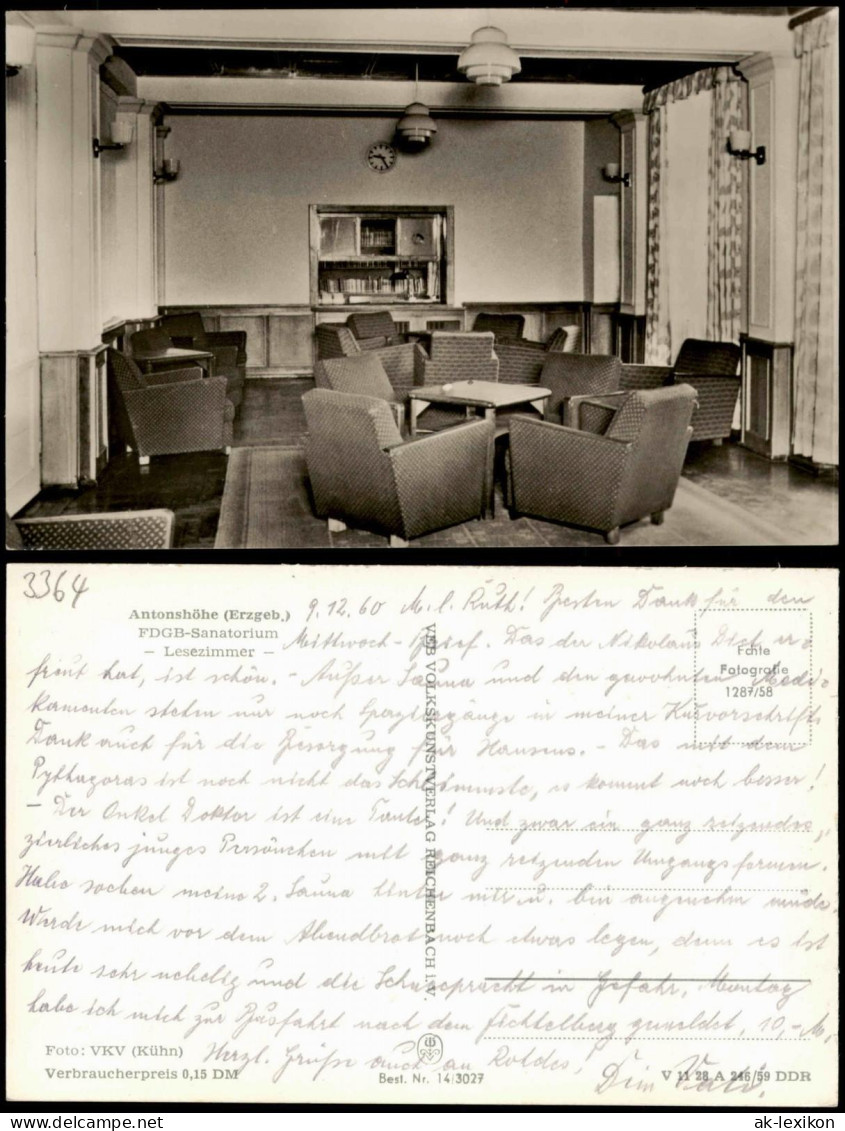 3364
Antonshöhe (Erzgeb.)
FDGB-Sanatorium
— Lesezimmer —
9.12.60 M. l. Ruth! Besten Dank für den
Mittwoch-Brief. Das der Nikolaus Dich er-
freut hat, ist schön. - Außer Sauna und den gewohnten Medi-
kamenten stehen nur noch Spaziergänge in meiner Kurvorschrift.
Dank auch für die Besorgung für Hausens. - Das mit dem
Pythagoras ist noch nicht das Schlimmste, es kommt noch besser!
- Der Onkel Doktor ist eine Tante! Und zwar ein ganz reizendes,
zierliches junges Persönchen mit ganz reizenden Umgangsformen.
Habe soeben meine 2. Sauna hinter mir u. bin angenehm müde.
Werde mich vor dem Abendbrot noch etwas legen, denn es ist
heute sehr nebelig und die Schneepracht in Gefahr. Montag
habe ich mich zur Busfahrt nach dem Fichtelberg gemeldet, 10,- M.
Herzl. Grüße auch an
Dein Vati.
Echte
Fotografie
1287/58
VEB VOLKSKUNSTVERLAG REICHENBACH i. V.
Foto: VKV (Kühn)
Verbraucherpreis 0,15 DM
Best. Nr. 14/3027
V 11 28 A 246/59 DDR
ak-lexikon